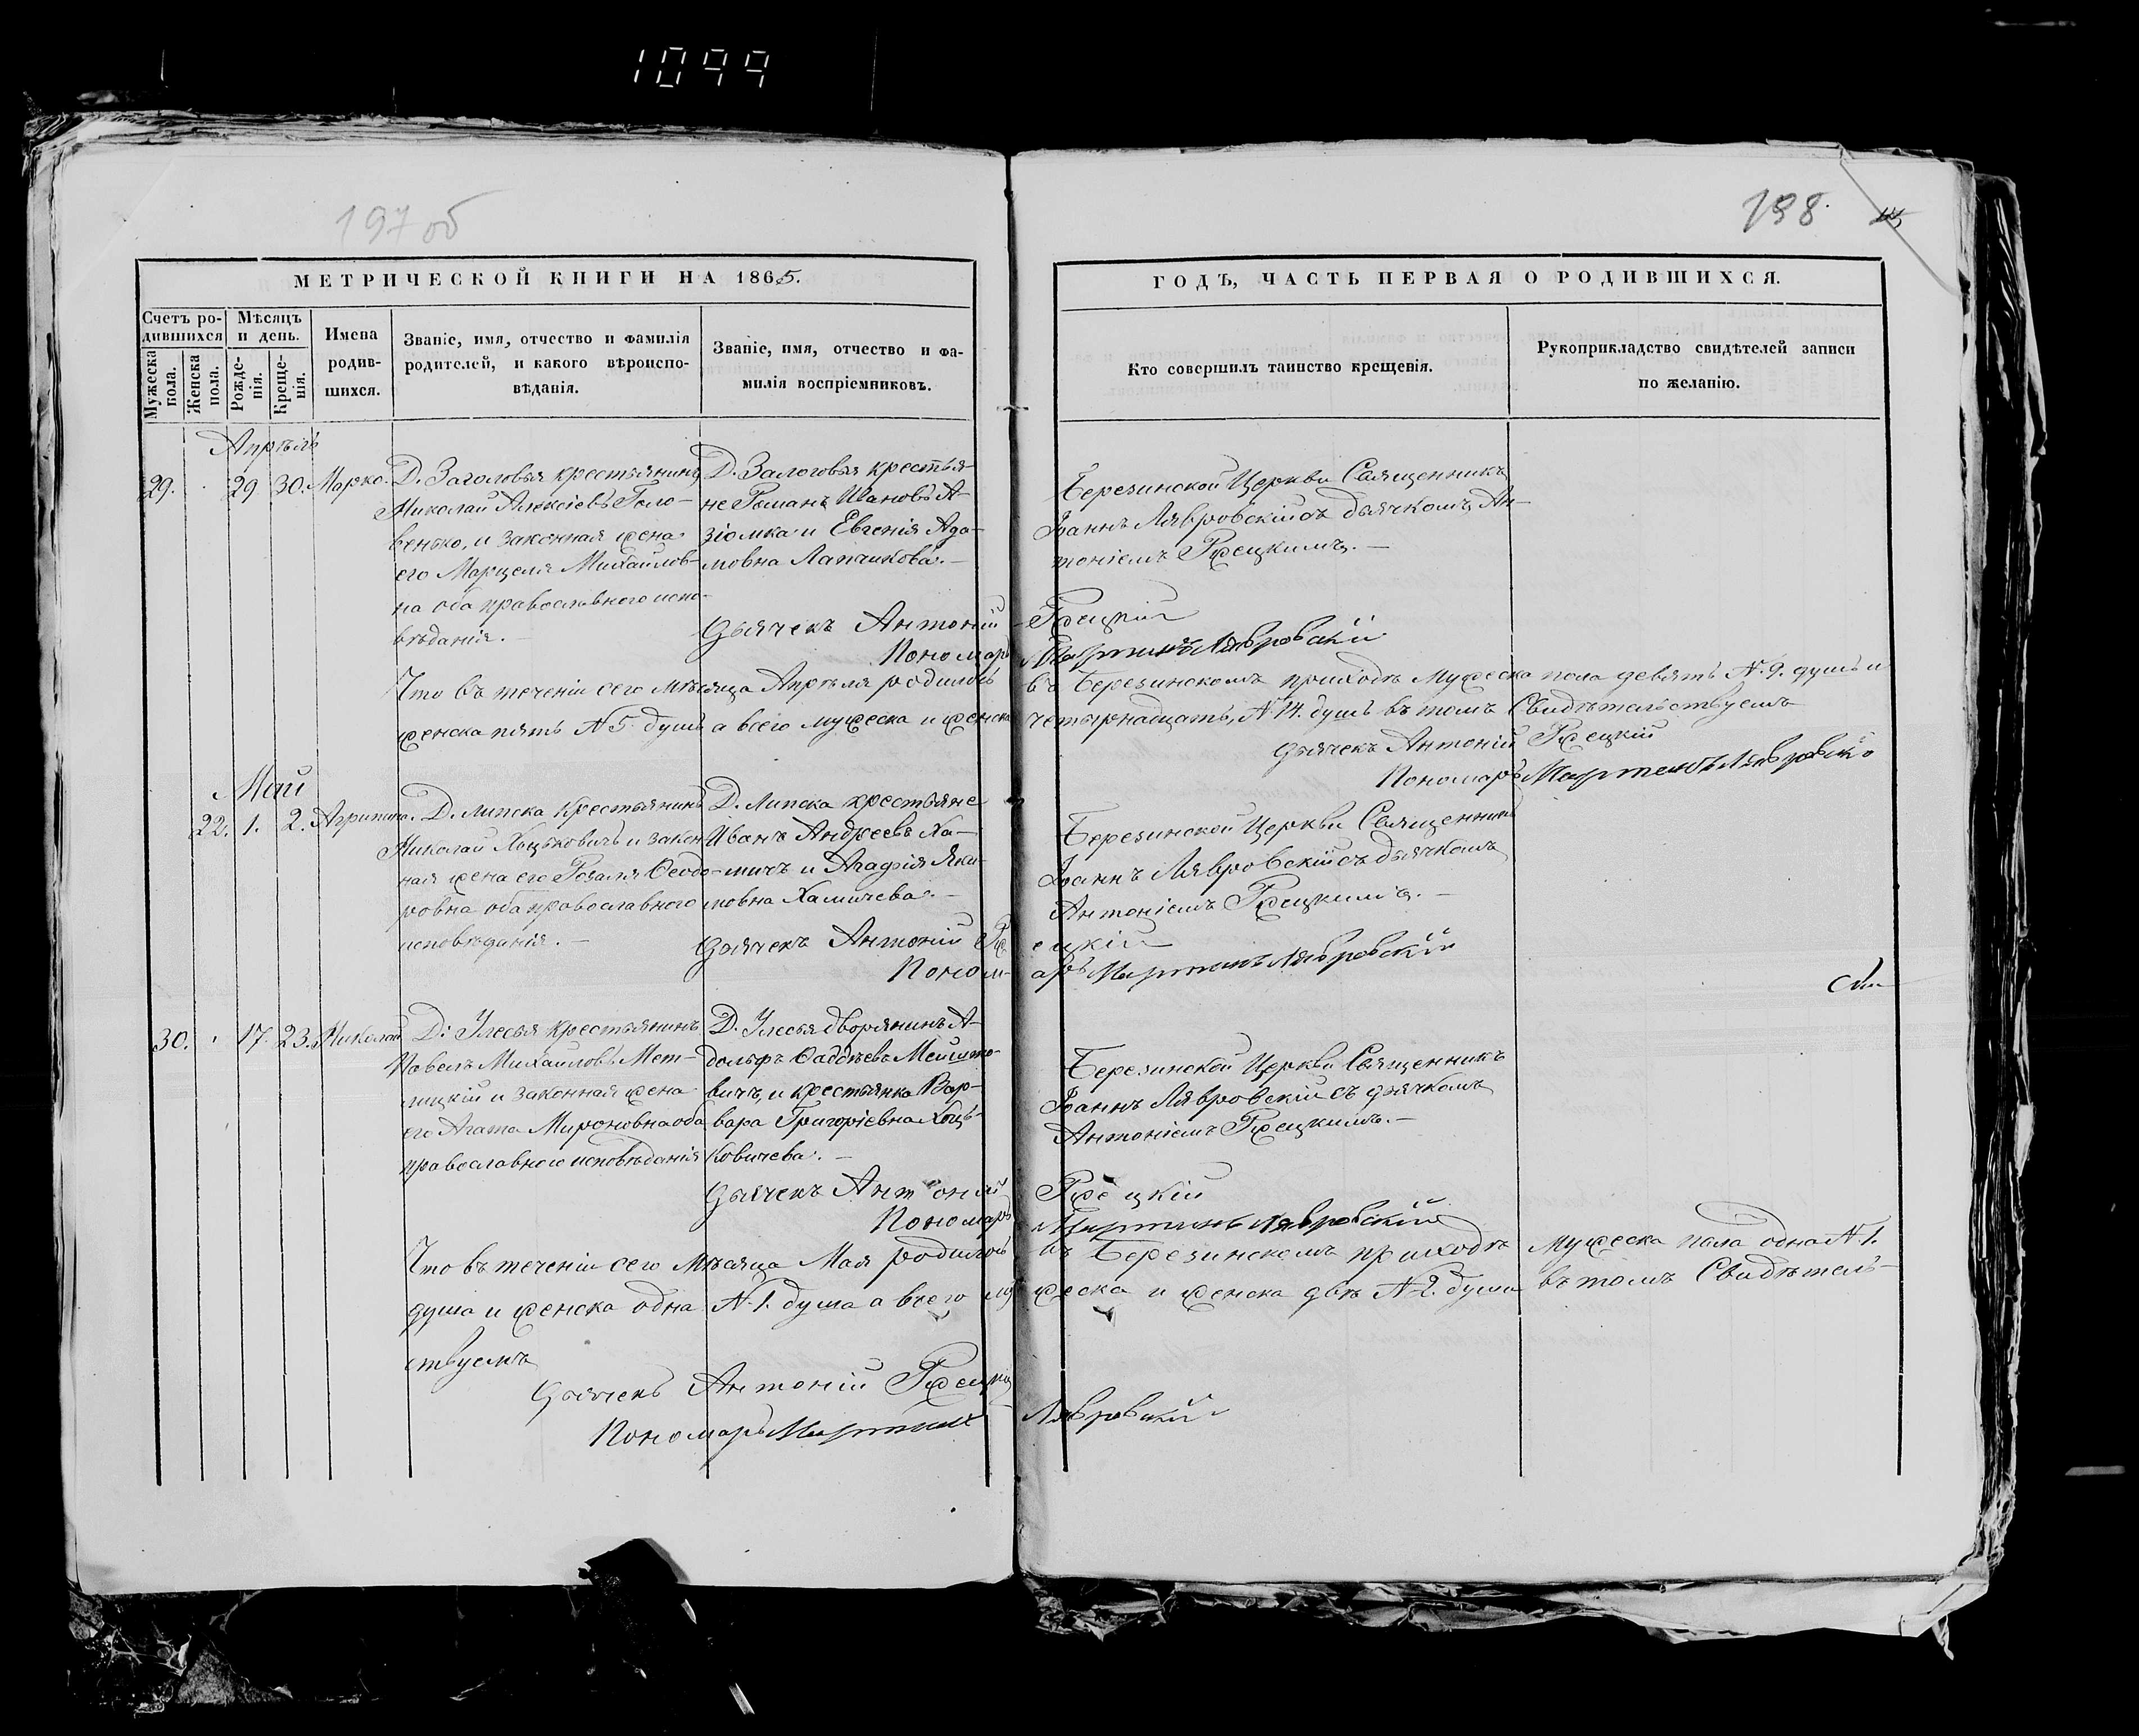 1099
197 об
198.
МЕТРИЧЕСКОЙ КНИГИ НА 1865.
ГОДЪ, ЧАСТЬ ПЕРВАЯ О РОДИВШИХСЯ.
Счетъ ро-
дившихся
Мужеска пола.
Женска пола.
Мѣсяцъ
и день.
Рожде-
нія.
Креще-
нія.
Имена
родив-
шихся.
Званіе, имя, отчество и фамилія
родителей, и какого вѣроиспо-
вѣданія.
Званіе, имя, отчество и фа-
милія воспріемниковъ.
Кто совершилъ таинство крещенія.
Рукоприкладство свидѣтелей записи
по желанію.
Апрѣль
29. 29 30. Марко.
Д. Заголовья крестьянинъ
Николай Алексіевъ Голо-
венько, и законная жена
его Марцеля Михайлов-
на оба православнаго испо-
вѣданія.
Д. Залоговья крестья-
не Романъ Ивановъ А-
зіомка и Евгенія Ада-
мовна Лапчикова.
Березинской Церкви Священникъ
Іоаннъ Лявровскій съ дьячкомъ Ан-
тоніемъ Ржецкимъ.
Дьячекъ Антоній Ржецкій
Пономарь Мартинъ Лявровскій
Что въ теченіи сего мѣсяца Апрѣля родилось въ Березинскомъ приходѣ мужеска пола девять N. 9. душъ и
женска пять N 5. душъ а всего мужеска и женска четырнадцать, N 14. душъ въ томъ Свидѣтельствуемъ
Дьячекъ Антоній Ржецкій
Пономарь Мартинъ Лявровскі
Май
22. 1. 2. Агрипина.
Д. Липска Крестьянинъ
Николай Хацьковичъ и закон-
ная жена его Розалія Ѳеодо-
ровна оба православнаго
исповѣданія.
Д. Липска крестьяне
Иванъ Андреевъ Ха-
мичъ и Агафія Яки-
мовна Хамичева.
Березинской Церкви Священникъ
Іоаннъ Лявровскій съ дьячкомъ
Антоніемъ Ржецкимъ.
Дьячекъ Антоній Ржецкій
Пономарь Мартинъ Лявровскій
30. 17. 23. Николай
Д. Улесья крестьянинъ
Павелъ Михайловъ Мет-
лицкій и законная жена
его Агата Мироновна оба
православнаго исповѣданія
Д. Улесья дворянинъ А-
дольфъ Фаддѣевъ Мейшто-
вичъ, и крестьянка Вар-
вара Григоріевна Хоць-
ковичева.
Березинской Церкви Священникъ
Іоаннъ Лявровскій съ дьячкомъ
Антоніемъ Ржецкимъ.
Дьячекъ Антоній Ржецкій
Пономарь Мартинъ Лявровскій
Что въ теченіи сего мѣсяца Мая родилось въ Березинскомъ приходѣ мужеска пола одна N. 1.
душа и женска одна N. 1. душа а всего мужеска и женска двѣ N 2. души въ томъ Свидѣтель-
ствуемъ
Дьячекъ Антоній Ржецкій
Пономарь Мартинъ Лявровскій